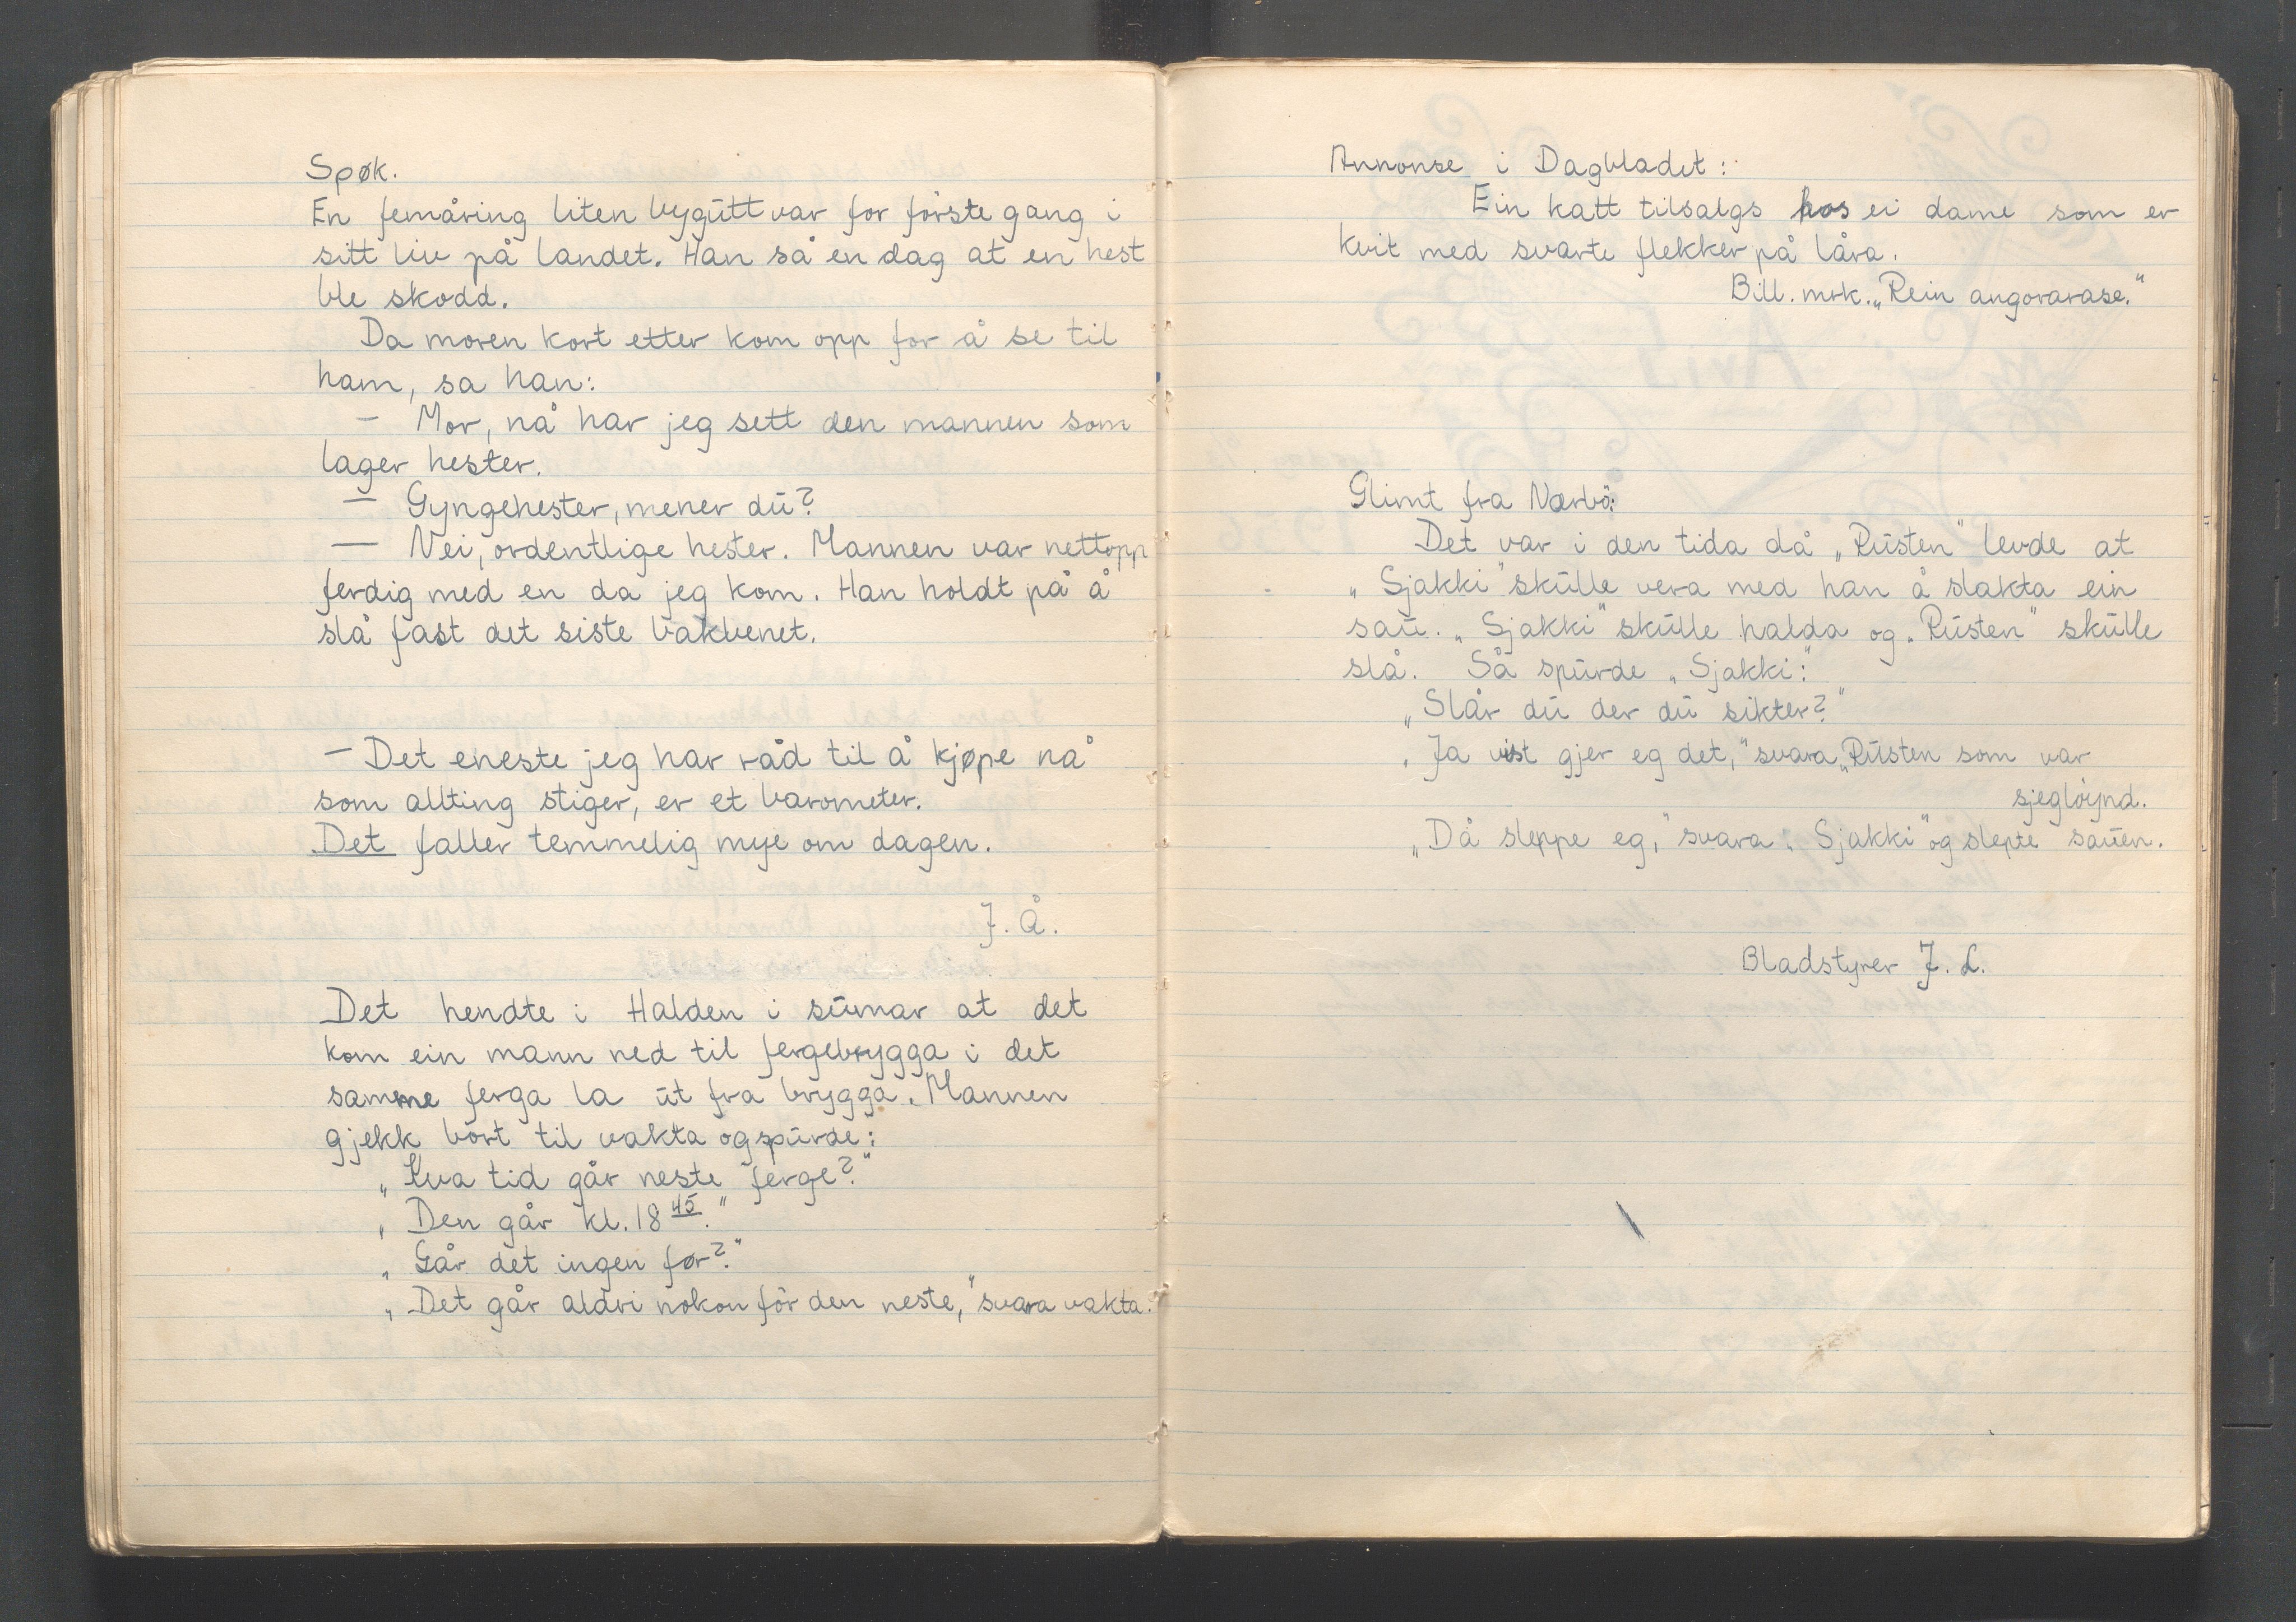 Spøk.
En femåring liten bygutt var for første gang i
sitt liv på landet. Han så en dag at en hest
ble skodd.
Da moren kort etter kom opp for å se til
ham, sa han:
— Mor, nå har jeg sett den mannen som
lager hester.
— Gyngehester, mener du?
— Nei, ordentlige hester. Mannen var nettopp
ferdig med en da jeg kom. Han holdt på å
slå fast det siste bakbenet.
— Det eneste jeg har råd til å kjøpe nå
som allting stiger, er et barometer.
Det faller temmelig mye om dagen.
J. Å.
Det hendte i Halden i sumar at det
kom ein mann ned til fergebrygga i det
samme ferga la ut fra brygga. Mannen
gjekk bort til vakta og spurde:
„Kva tid går neste ferge?"
„Den går kl. 18 45."
„Går det ingen før?"
„Det går aldri nokon før den neste," svara vakta.
Annonse i Dagbladet:
Ein katt tilsalgs hos ei dame som er
kvit med svarte flekker på låra.
Bill. mrk. „Rein angorarase."
Glimt fra Nærbö:
Det var i den tida då „Rusten" levde at
„Sjakki" skulle vera med han å slakta ein
sau. „Sjakki" skulle halda og „Rusten" skulle
slå. Så spurde „Sjakki":
„Slår du der du sikter?"
„Ja vist gjer eg det," svara „Rusten som var
sjegløynd.
„Då sleppe eg," svara „Sjakki" og slepte sauen.
Bladstyrer J. L.